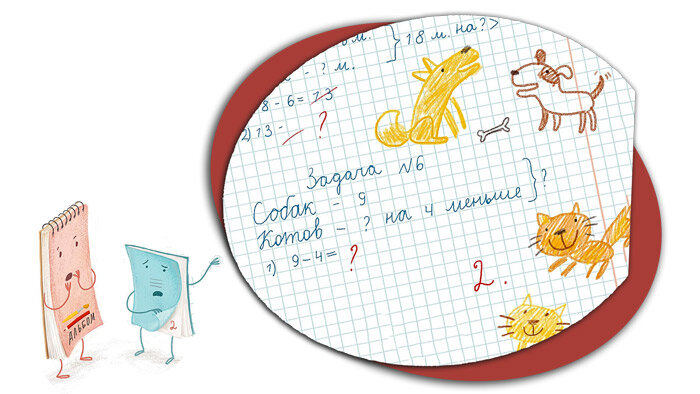 м. } 18 м. на?>
- ? м.
8 - 6 = 13
2) 13 - ?
Задача №6
Собак - 9
Котов - ? на 4 меньше } ?
1) 9-4= ?
2.
АЛЬБОМ
2